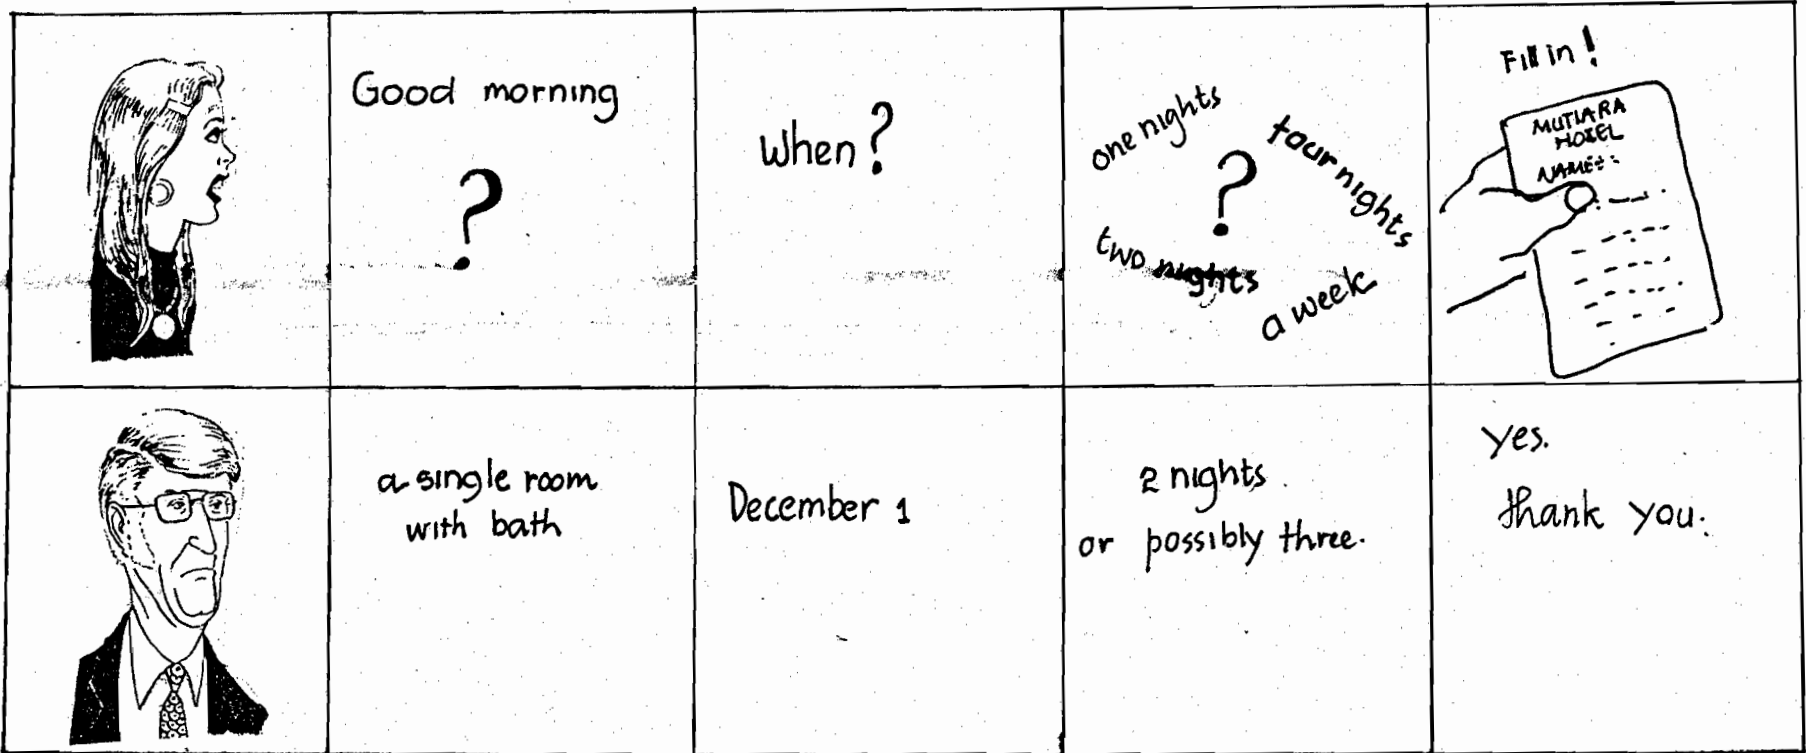 Good morning
?
When?
one nights
?
four nights
two nights
a week
Fill in!
MUTIARA
HOTEL
NAME::
a single room
with bath
December 1
2 nights
or possibly three.
yes.
thank you.